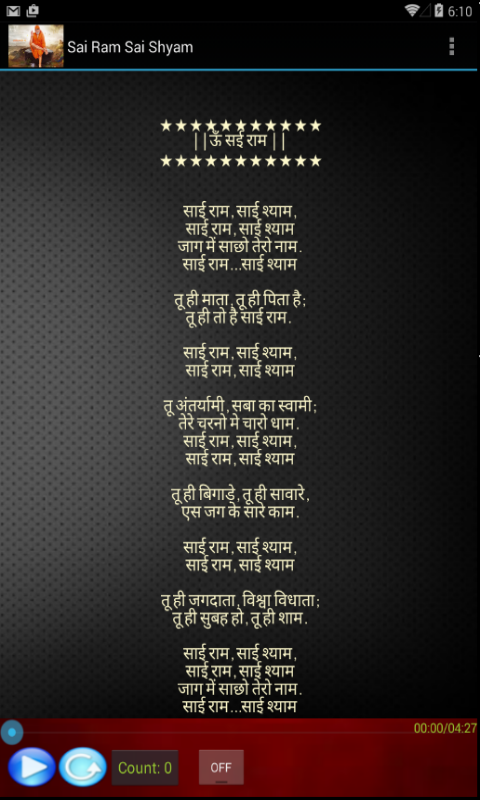 6:10
Sai Ram Sai Shyam
★★★★★★★★★★★
||ऊँ सई राम ||
★★★★★★★★★★★
साई राम, साई श्याम,
साई राम, साई श्याम
जाग में साछो तेरो नाम.
साई राम...साई श्याम
तू ही माता, तू ही पिता है;
तू ही तो है साई राम.
साई राम, साई श्याम,
साई राम, साई श्याम
तू अंतर्यामी, सबा का स्वामी;
तेरे चरनो मे चारो धाम.
साई राम, साई श्याम,
साई राम, साई श्याम
तू ही बिगाड़े, तू ही सावारे,
एस जग के सारे काम.
साई राम, साई श्याम,
साई राम, साई श्याम
तू ही जगदाता, विश्वा विधाता;
तू ही सुबह हो, तू ही शाम.
साई राम, साई श्याम,
साई राम, साई श्याम
जाग में साछो तेरो नाम.
साई राम...साई श्याम
00:00/04:27
Count: 0
OFF